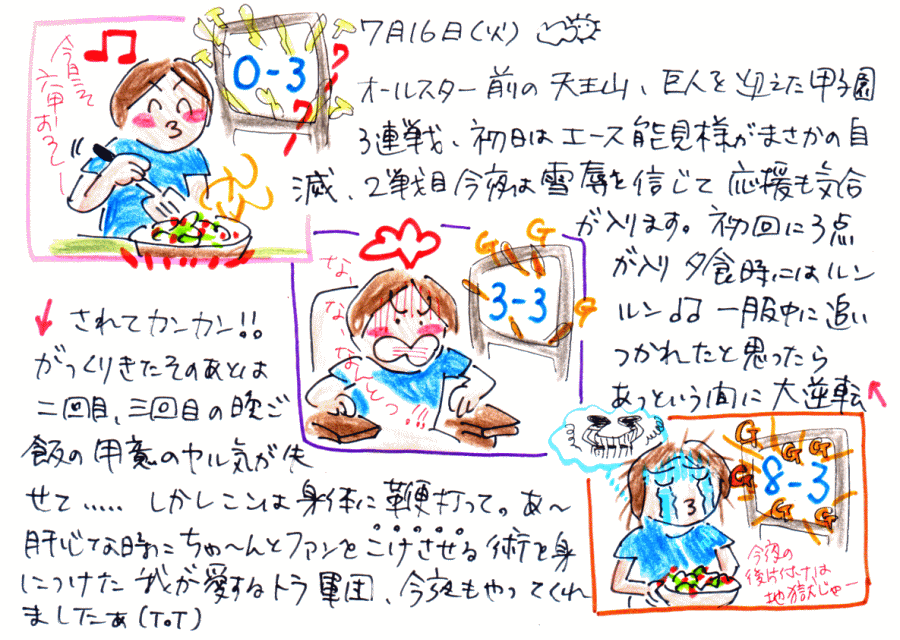 7月16日(火)
オールスター前の天王山、巨人を迎えた甲子園
3連戦、初日はエース能見様がまさかの自
滅、2戦目今夜は雪辱を信じて応援も気合
が入ります。初回に3点
が入り夕食時にはルン
ルン♫♫一服中に追い
つかれたと思ったら
あっという間に大逆転
されてカンカン!!
がっくりきたそのあとは
二回目、三回目の晩ご
飯の用意のヤル気が失
せて..... しかしここは身体に鞭打って。あ〜
肝心な時にちゃ〜んとファンをこけさせる術を身
につけた我が愛するトラ軍団、今夜もやってくれ
ましたぁ(T0T)
今日こそ
六甲おろし〜
0-3
ワー
ワー
な、
な、
なんとっ!!!
G
G
G
3-3
G
G
G
G
G
G
G
8-3
今夜の
後片付けは
地獄じゃー